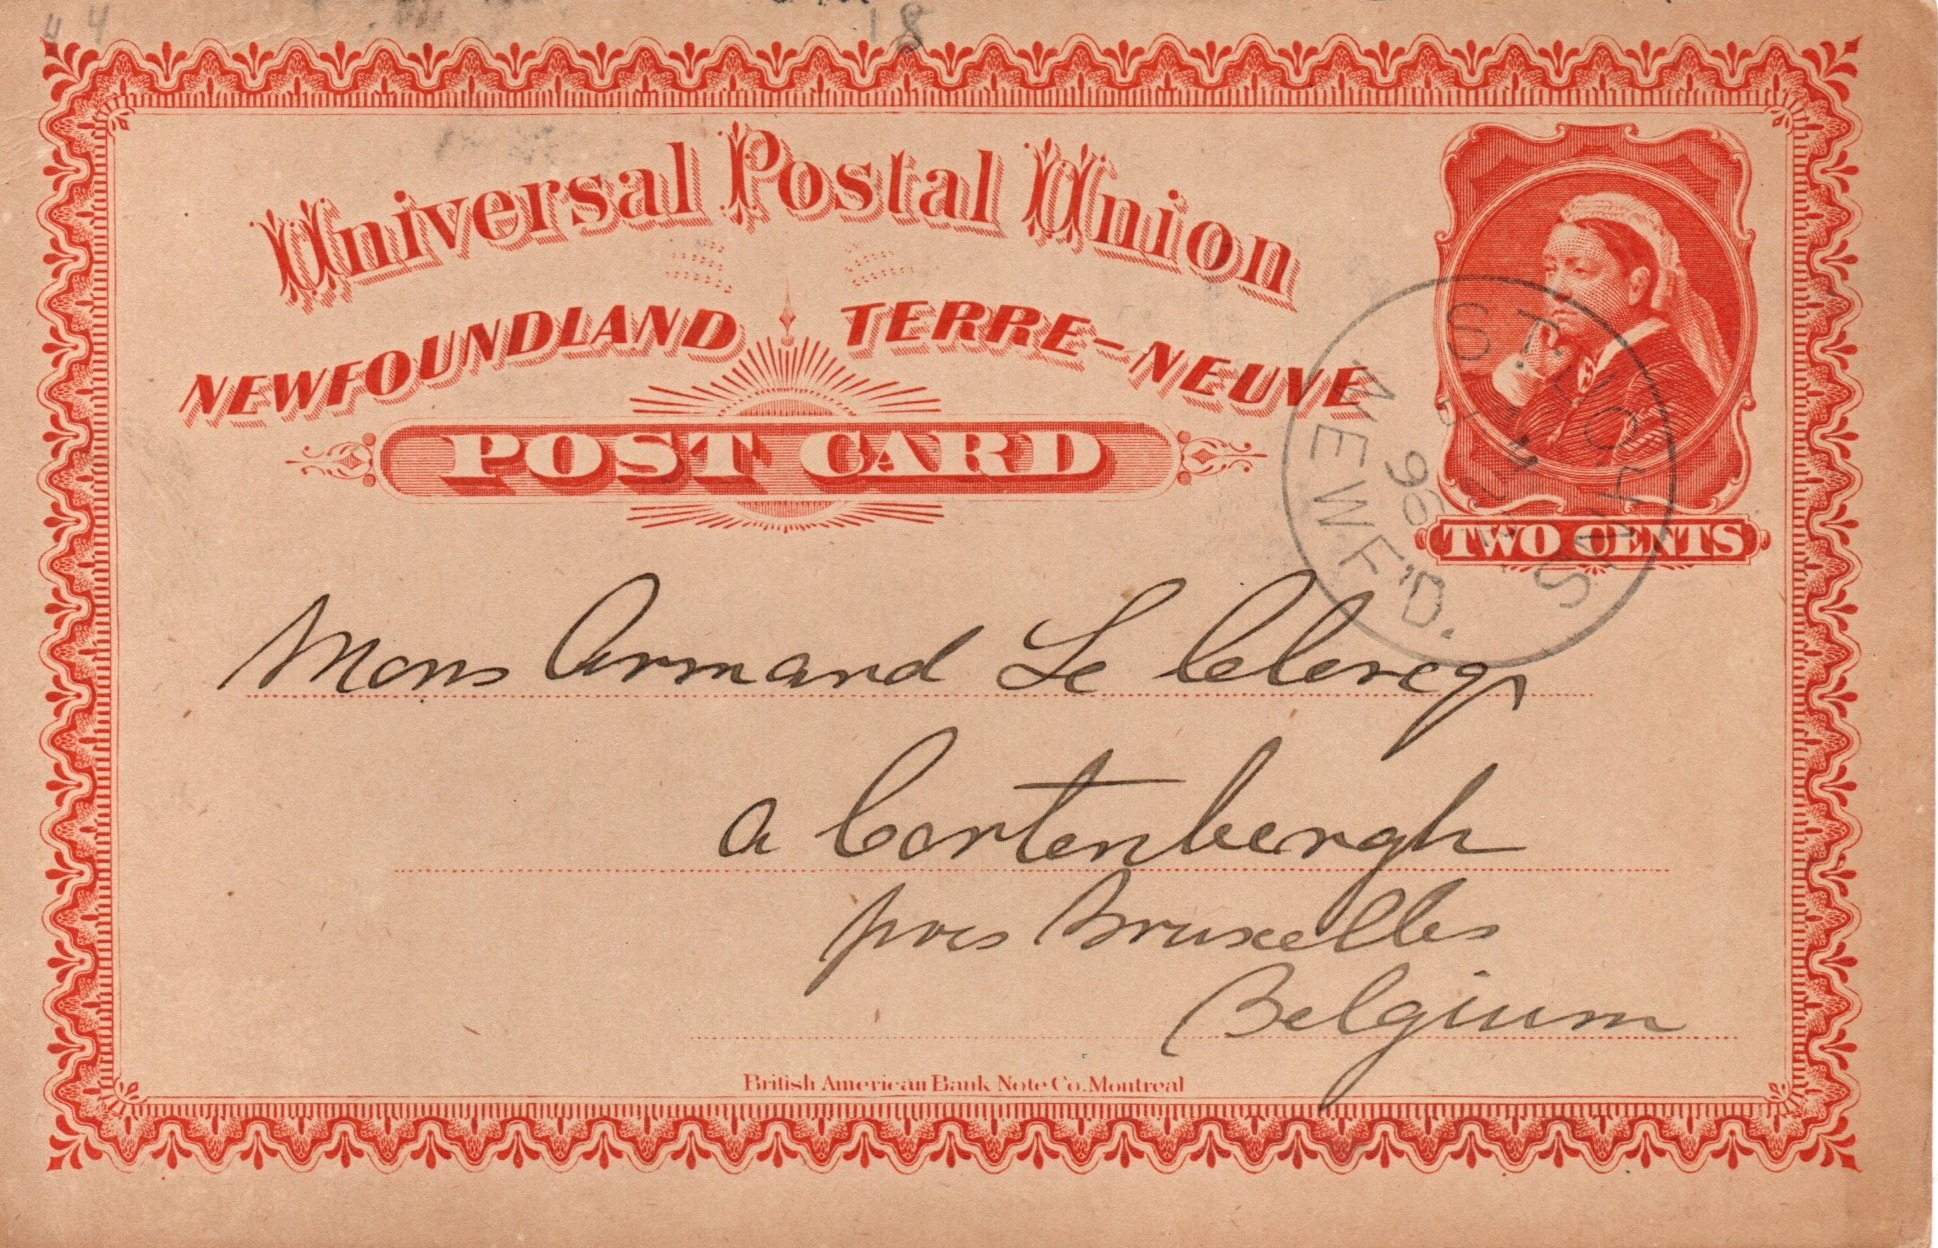 18
Universal Postal Union
NEWFOUNDLAND TERRE-NEUVE
POST CARD
TWO CENTS
ST. JOHN'S
96
NEWF'D.
Mons Armand Le Clercq
a Cortenbergh
pres Bruxelles
Belgium
British American Bank Note Co. Montreal